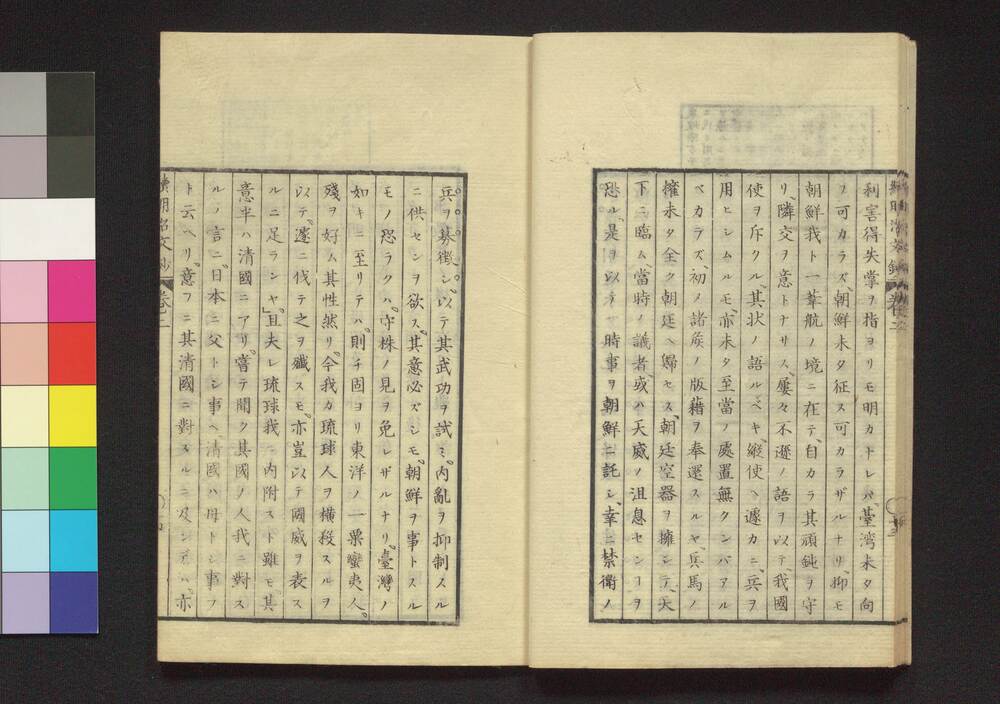 利害得失掌ヲ指ヨリモ明カナトレバ臺湾未タ向
フ可カラズ、朝鮮未タ征ス可カラザルナリ、抑モ
朝鮮我ト一葦航ノ境ニ在テ、自カラ其頑鈍ヲ守
リ、隣交ヲ意トナリス、屢々不遜ノ語ヲ以テ、我國
使ヲ斥クル、其状ノ語ルベキ、縦使ヘ遽カニ、兵ヲ
用ヒシムルモ、亦未タ至當ノ處置無クンバアル
ベカラズ、初ノ諸矦ノ版籍ヲ奉還スルヤ、兵馬ノ
擁未タ全ク朝廷ヘ歸セス、朝廷空器ヲ擁シテ、天
下ニ臨ム、當時ノ議者、或ハ天威ノ沮息センヿヲ
恐ル、是ヲ以テ、時事ヲ朝鮮ニ託シ、幸ニ禁衛ノ
兵ヲ募徴シ、以テ其武功ヲ試ミ、内亂ヲ抑制スル
ニ供センヲ欲ス、其意必ズシモ、朝鮮ヲ事トスル
モノ恐ラクハ、守株ノ見ヲ免レザルナリ、臺灣ノ
如キニ至リテハ、則チ固ヨリ東洋ノ一粟蠻夷人、
殘ヲ好ム其性然リ、今我カ琉球人ヲ横殺スルヲ
以テ、遽ニ伐テ之ヲ殲スモ、亦豈以テ國威ヲ表ス
ルニ足ランヤ、且夫レ琉球我ニ内附スト雖モ、其
意半ハ清國ニアリ、嘗テ聞ク其國ノ人我ニ對ス
ルノ言ニ、日本ニ父トシ事ヘ、清國ハ母トシ事フ
ト云ヘリ、意フニ其清國ニ對スルニ及ンデハ、亦
巻二